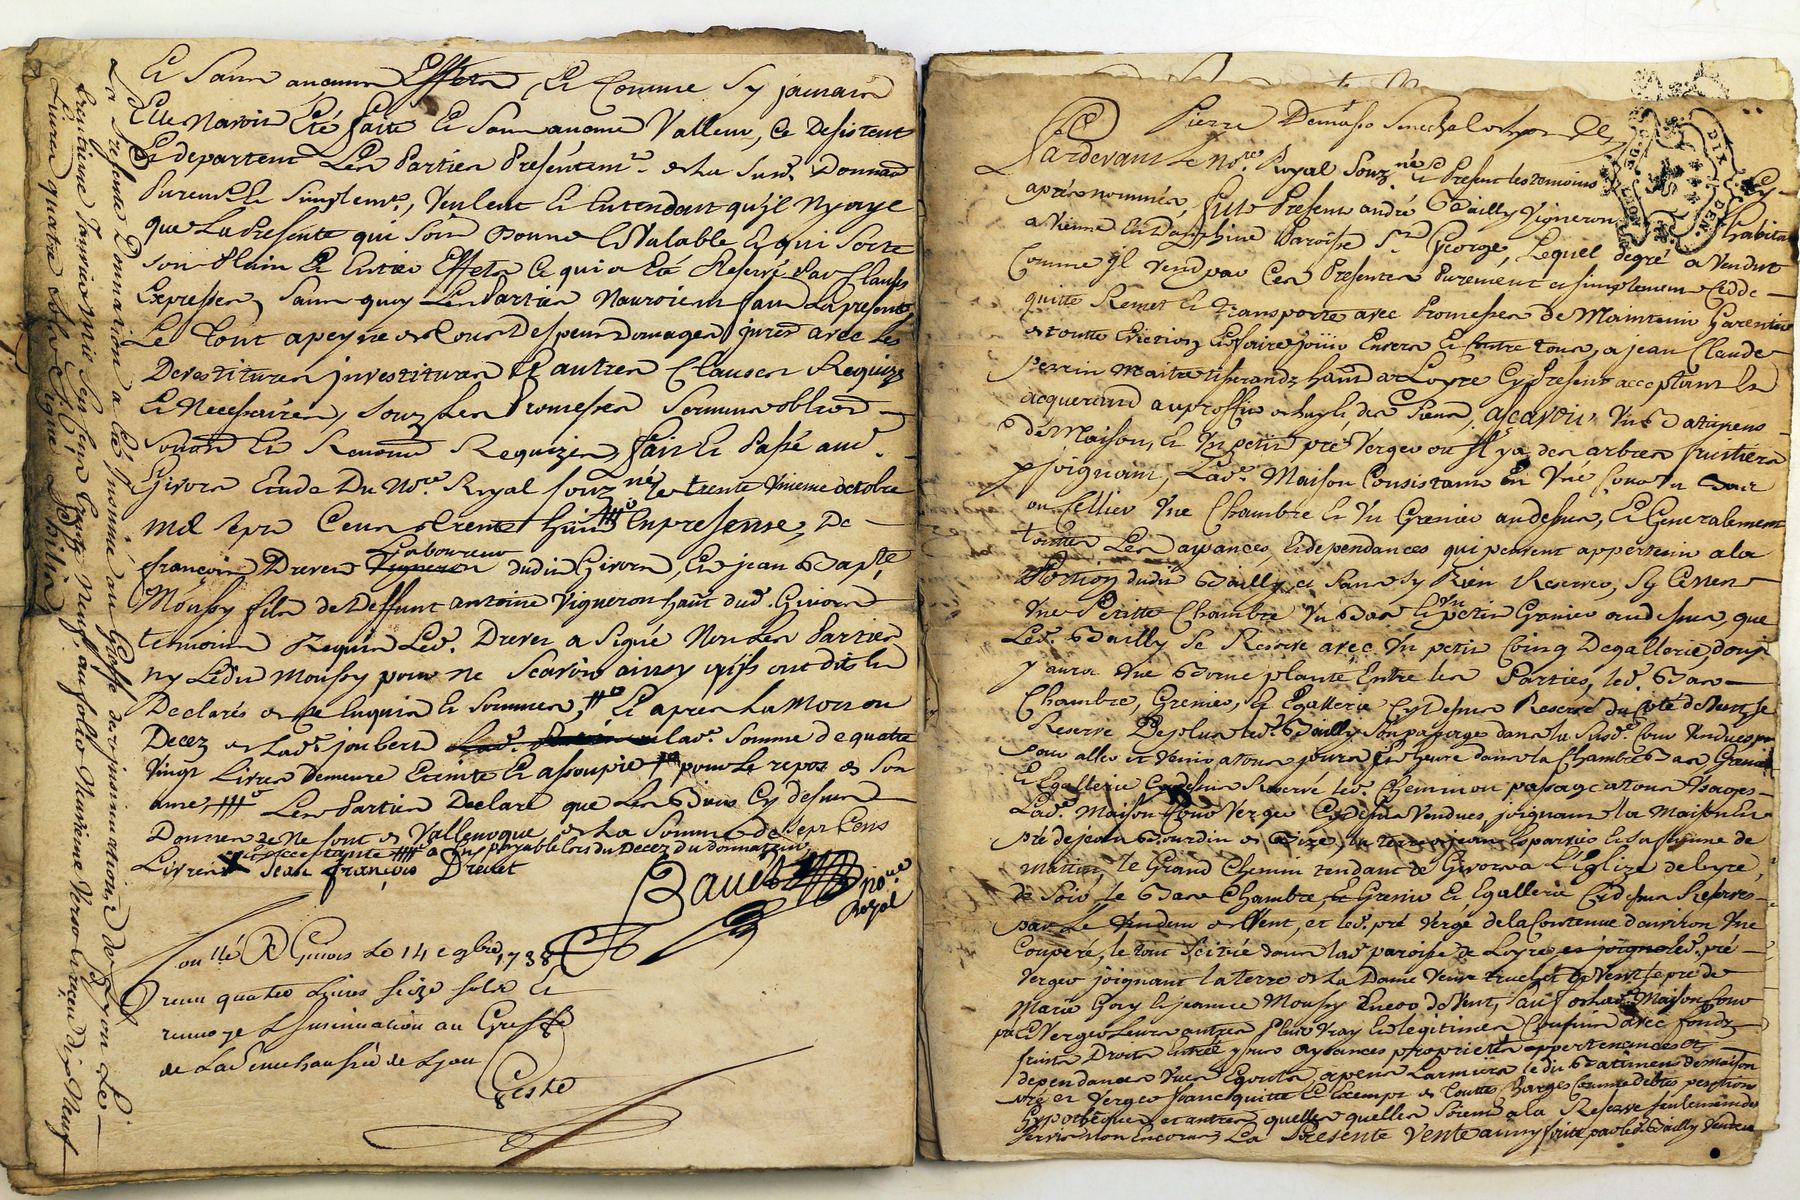 Et Sans aucuns Effets, Et Comme Sy jamais
Elle Navoit Eté faite Et Sans aucune Valleur, Ce desistent
Et departent Les Parties Présentemt. de la Susd. Donnaon
Purement Et Simplemt., Veulent Et Entendent qu'jl Ny aye
que La Presente qui Soit Bonne Et Valable Et qui Sorte
Son Plain Et Entier Effets Ce qui a Eté Reservé Par Clauses
Expresses, Sans quoy Les Parties Nauroient fait La presente
Le Tout a peyne de Tous Despens Domages jntes avec Les
Devestitures jnvestitures Et autres Clauses Requizes
Et Necessaires, Souz Les Promesses Soumons obligons
Renons Requizes, fait Et Passé aud.
Givors Etude Du Nore. Royal Souzné. le trente Unieme octobre
mil Sept Cens trente huit En presense, De
françois Drevet Laboureur dudit Givors, Et jean Bapte.
Moussy fils de Deffunt antoine Vigneron hant dud. Givors
temoins Requis Led. Drevet a Signé Non Les Parties
ny Ledit Moussy pour ne Scavoir ainsy qu'jls ont dit Et
Declarés de Enquis Et Sommés, Et apres La Mort ou
Decez de Lad. joubert lad. Somme de quatre
Vingt Livres demeure Eteinte Et assoupie pour Le repos de Son
ame, Les Parties Declare que Les Biens Cy dessus
Donnés Ne Sont de Valleur que de La Somme de Sept Cens
Livres acceptante payable lors du Decez du donnateur
Jean françois Drevet
Bavet Nore
Royal
Conllé A Givors Le 14e 9bre 1738
reçu quatre Livres Seize Sols Et
renvoyé a Linsinuation au Greffe
de La Senechaussée de Lyon
Geste
La presente Donnation a Eté jnsinuée au Greffe des jnsinuations de Lyon Le
Trentieme Janvier Mil Sept Cens Trente Neuf, au folio Neuvieme Verso Et reçeu Dix Neuf
Livres quatre Sols Signé
Pierre Senechal
Pardevant Le Nore. Royal Souzné Et Present les temoins
apres nommés, fut Present andré Bailly Vigneron habitant
a Vienne En Dauphine Paroisse St. George, Lequel degré a Vendut
Comme jl Vend par Ces Presentes Purement et simplement Cedde
quitte Remet Et transporte avec Promesses de Maintenir Garentir
de toutte Eviction Et faire joüir Envers Et Contre tous, a jean Claude
Perrin Maitre tisserand hant a Loyre Cy present acceptant Et
acquerand au proffit de luy Et des Siens, a scavoir, Un Batimens
de Maison, Et Un petit pré Verger ou jl y a des arbres fruitiers
joignant, Lad. Maison Consistante En Une Cour
ou Cellier Une Chambre Et Un Grenier audessus, Et Generalement
touttes Les aysances Et dependances qui peuvent appartenir a la
Portion dudit Bailly et Sans Sy Rien Reserver, Sy Ce n'est
Une Petitte Chambre Un Bas Et un petit Grenier audessus que
Led. Bailly Se Reserve avec Un petit Coing De gallerie, dont
y aura Une Borne plantée Entre Les Parties, led. Bas
Chambre, Grenier, Et Egallerie Cy dessus Reservé du Coté de Vent, Se
Reserve De plus led. Bailly Son passage dans la Susd. Cour Vendue
pour aller et Venir a tous jours Et heure dans la Chambre Bas Grenier
Et Egallerie Cy dessus Reservé led. Chemin ou passage a tous Usages
Lad. Maison Cour Verger Cy dessus Vendues, joignant la Maison Et
pré de jean Bourdin de Bize,
matin, le Grand Chemin tendant de Givors a L'Eglize de loyre,
de Soir, le Bas Chambre, Grenier Et Egallerie Cy dessus Reservés
par Le Vendeur de Vent, et led. pré Verger de la Contenue d'environ Une
Couperé, le tout Scitué dans lad. paroisse de Loyre led. pré
Verger joignant la terre de La Dame Veuve de Vent, le pré de
Marie Gory Et jeannes Moussy de Vent, Sauf de Lad. Maison Cour
pré Verger Leurs autres Plus Vray Et legitimes Confins avec fonds
fruits Droits Entrée ysues aysances proprietés appertenances et
dependances Vues Egouts, Larmiers le du Batimens de maison
pré et Verger franc quitte Et Exempt de Touttes Charges Comme debtes pensions
hypotheques et autres quelles quelles Soient a la Reserve Seulement des
Servis Non Encourus, La Presente Vente ainsy faite par led. Bailly Vendeur